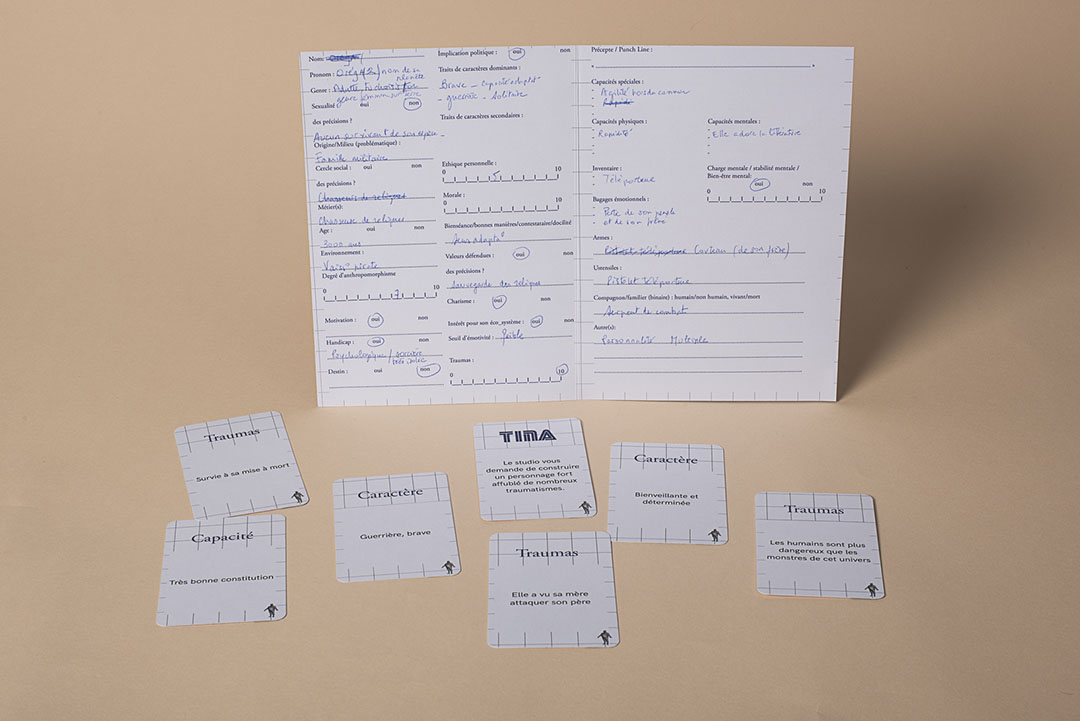 Nom:
Pronom : / nom de sa
planète
Genre : Adulte,
genre
Sexualité : oui non
des précisions ?
Aucun survivant de son espèce -
Origine/Milieu (problématique) :
Famille militaire
Cercle social : oui non
des précisions ?
Chasseurs de reliques
Métier(s):
Chasseuse de reliques
Age : oui non
3000 ans
Environnement :
pirate
Degré d'anthropomorphisme
0 10
7
Motivation : oui non
Handicap : oui non
Psychologique / sorcière
Destin : oui non
Implication politique : oui non
Traits de caractères dominants :
Brave - Capacité
- guerrière - Solitaire
Traits de caractères secondaires :
Ethique personnelle :
0 5 10
Morale :
0 10
Bienséance/bonnes manières/contestataire/docilité
adapté
Valeurs défendues : oui non
des précisions ?
Sauvegarde des reliques
Charisme : oui non
Intérêts pour son éco_système : oui non
Seuil d'émotivité : faible
Traumas :
0 10
Précepte / Punch Line :
Capacités spéciales :
- Agilité hors du commun
- Rapide
Capacités physiques :
- Rapidité
Capacités mentales :
- Elle adore la littérature
Inventaire :
- Téléporteur
Charge mentale / stabilité mentale /
Bien-être mental:
oui non
0 10
Bagages émotionnels :
- Perte de son peuple
et de son frère
Armes :
Pistolet téléporteur Couteau (de son frère)
Ustensiles :
Pistolet téléporteur
Compagnon/familier (binaire) : humain/non humain, vivant/mort
Serpent de combat
Autre(s):
Personnalité Multiple
Traumas
Survie à sa mise à mort
Capacité
Très bonne constitution
Caractère
Guerrière, brave
TINA
Le studio vous
demande de construire
un personnage fort
affublé de nombreux
traumatismes.
Traumas
Elle a vu sa mère
attaquer son père
Caractère
Bienveillante et
déterminée
Traumas
Les humains sont plus
dangereux que les
monstres de cet univers